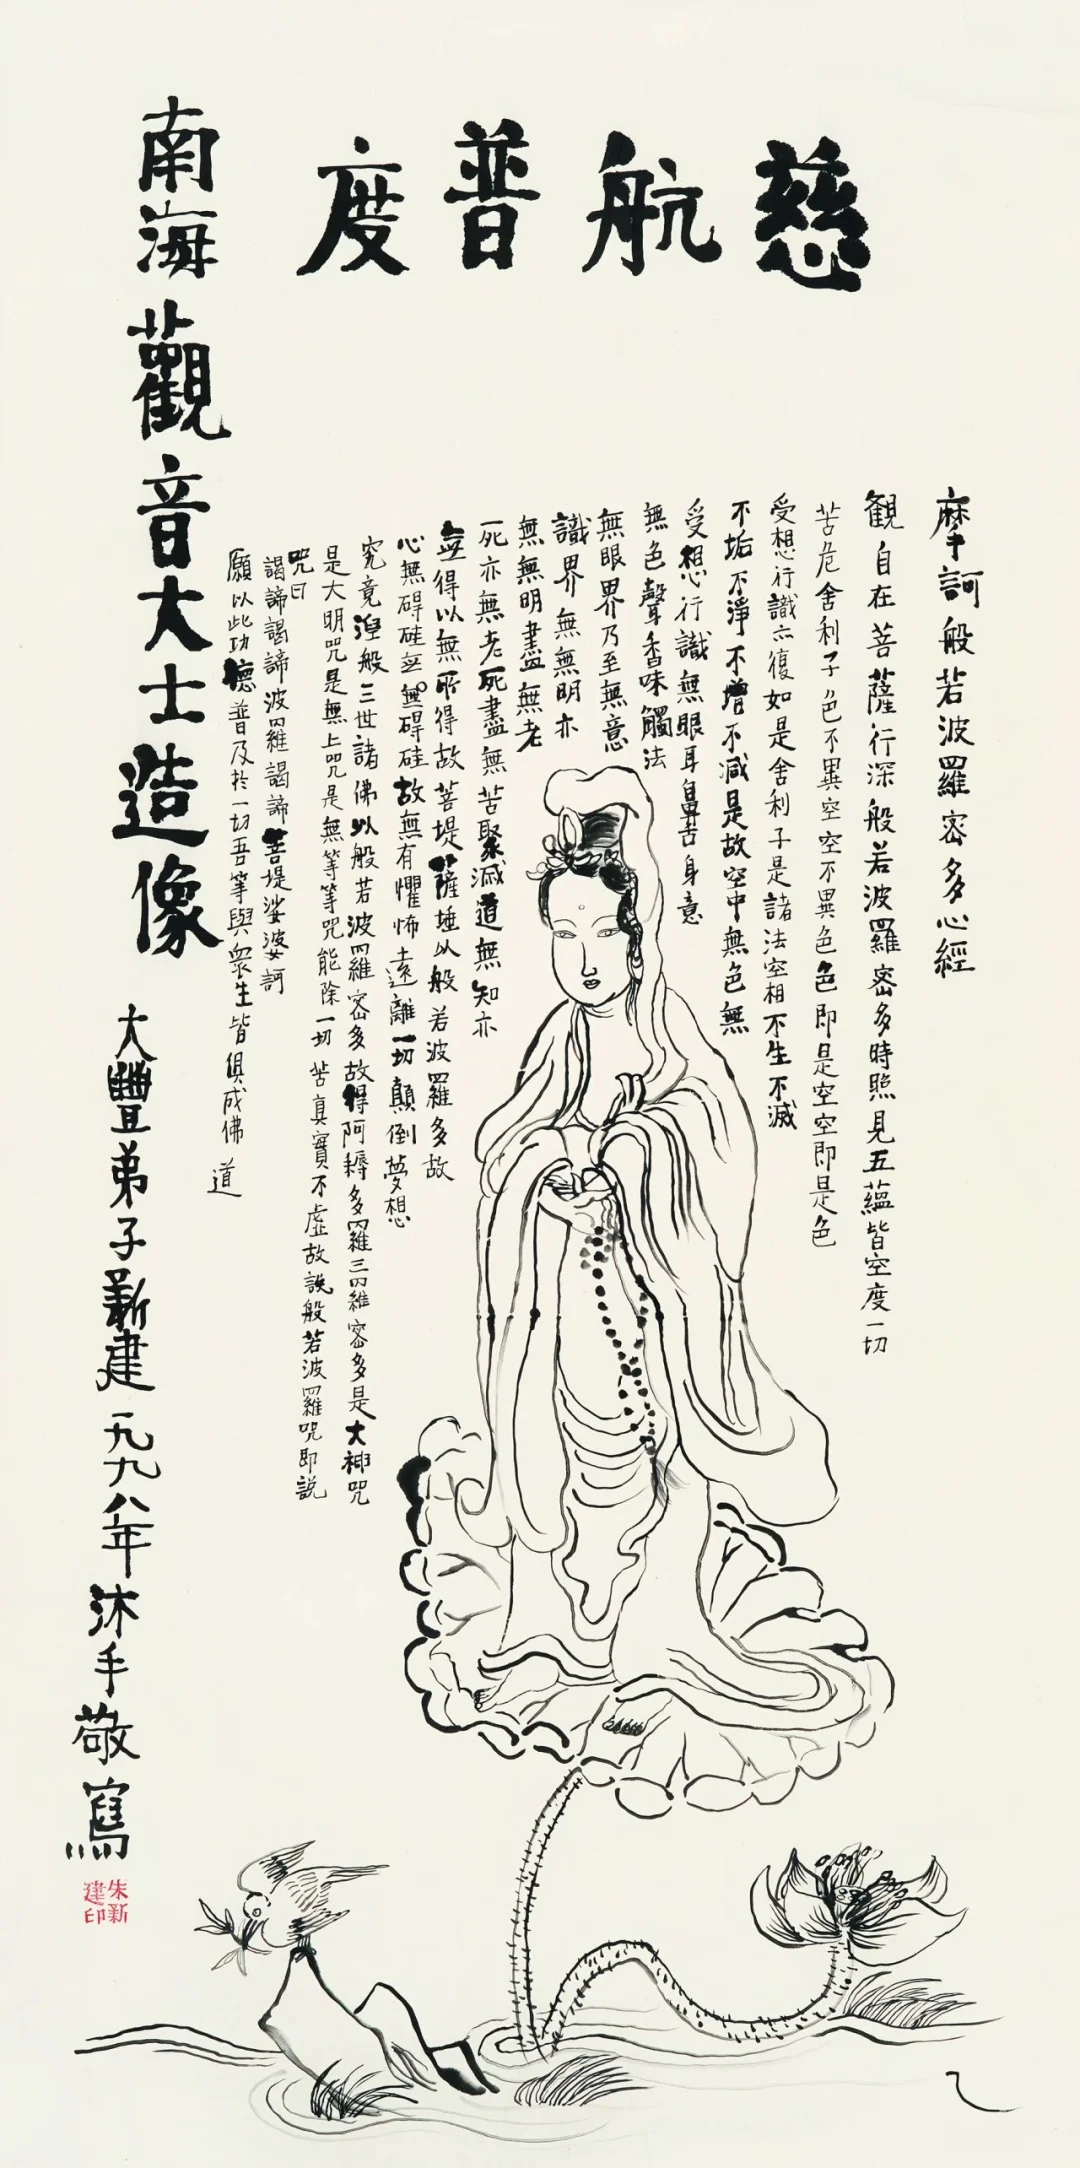 慈航普度
摩訶般若波羅密多心經
觀自在菩薩行深般若波羅密多時照見五蘊皆空度一切
苦危舍利子色不異空空不異色色即是空空即是色
受想行識亦復如是舍利子是諸法空相不生不滅
不垢不淨不增不減是故空中無色無
受想行識無眼耳鼻舌身意
無色聲香味觸法
無眼界乃至無意
識界無無明亦
無無明盡無老
死亦無老死盡無苦聚滅道無知亦
無得以無所得故菩提薩埵以般若波羅多故
心無碍硅無無碍硅故無有懼怖遠離一切顛倒夢想
究竟湼般三世諸佛以般若波羅密多故得阿耨多羅三四羅密多是大神咒
是大明咒是無上咒是無等等咒能除一切苦真實不虛故說般若波羅咒即說
咒曰
謁諦謁諦波羅謁諦菩提娑婆訶
願以此功德普及於一切吾等與眾生皆俱成佛道
南海觀音大士造像
大豐弟子新建一九九八年沐手敬寫
朱新建印